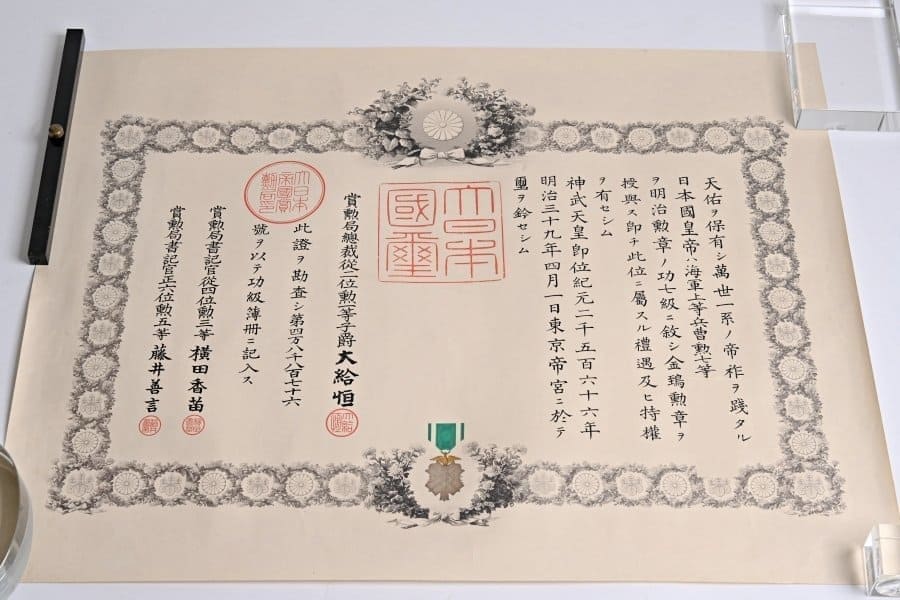 天佑ヲ保有シ萬世一系ノ帝祚ヲ踐タル
日本國皇帝ハ海軍上等兵曹勲七等
ヲ明治勲章ノ功七級ニ敘シ金鵄勲章ヲ
授與ス即チ此位ニ屬スル禮遇及ヒ特權
ヲ有セシム
神武天皇即位紀元二千五百六十六年
明治三十九年四月一日東京帝宮ニ於テ
璽ヲ鈐セシム
大日本
國璽
賞勲局總裁從二位勲一等子爵大給恒
大日本
帝國賞
勲局印
此證ヲ勘査シ第四万八千八百七十六
號ヲ以テ功級簿冊ニ記入ス
賞勲局書記官從四位勲三等 横田香苗
賞勲局書記官正六位勲五等 藤井善言